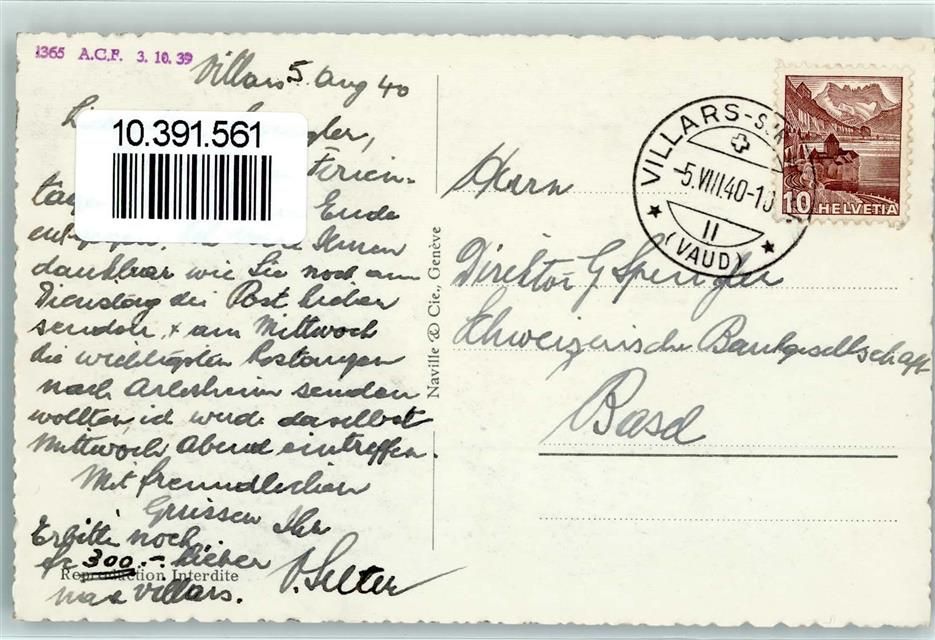 1365 A.C.F. 3.10.39
Villars 5. Aug 40
10.391.561
Ferien-
Ende
Ihnen
dankbar wie Sie noch am
Dienstag die Post hieher
senden, + am Mittwoch
die wichtigsten
nach Arlesheim senden
wollten, ich werde daselbst
Mittwoch Abend eintreffen.
Mit freundlichen
Grüssen Ihr
Erbitte noch
fr 300.- hieher
nach Villars.
Reproduction Interdite
Naville & Cie., Genève
VILLARS-S.
-5.VIII.40-1
II
(VAUD)
10 HELVETIA
Herrn
Direktor G Spengler
Schweizerische Bankgesellschaft
Basel